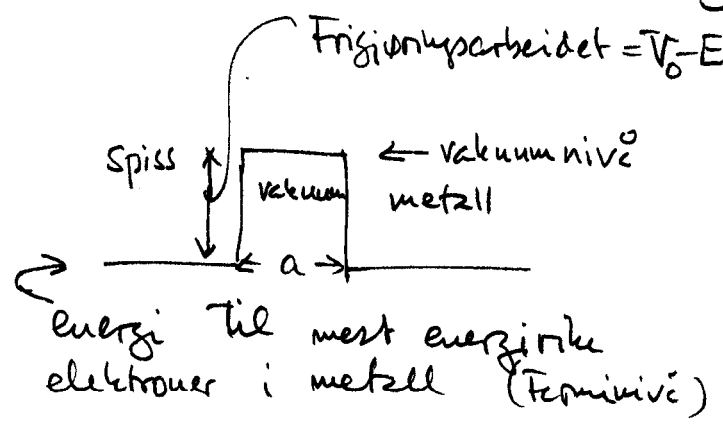 Frigjøringsarbeidet = V₀-E
Spiss
← vakuumnivå
vakuum
metall
← a →
energi til mest energirike
elektroner i metall (Ferminivå)